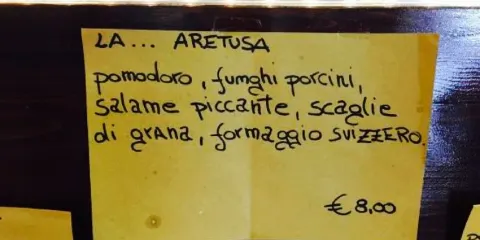 LA... ARETUSA
pomodoro, funghi porcini,
salame piccante, scaglie
di grana, formaggio SVIZZERO.
€ 8,00